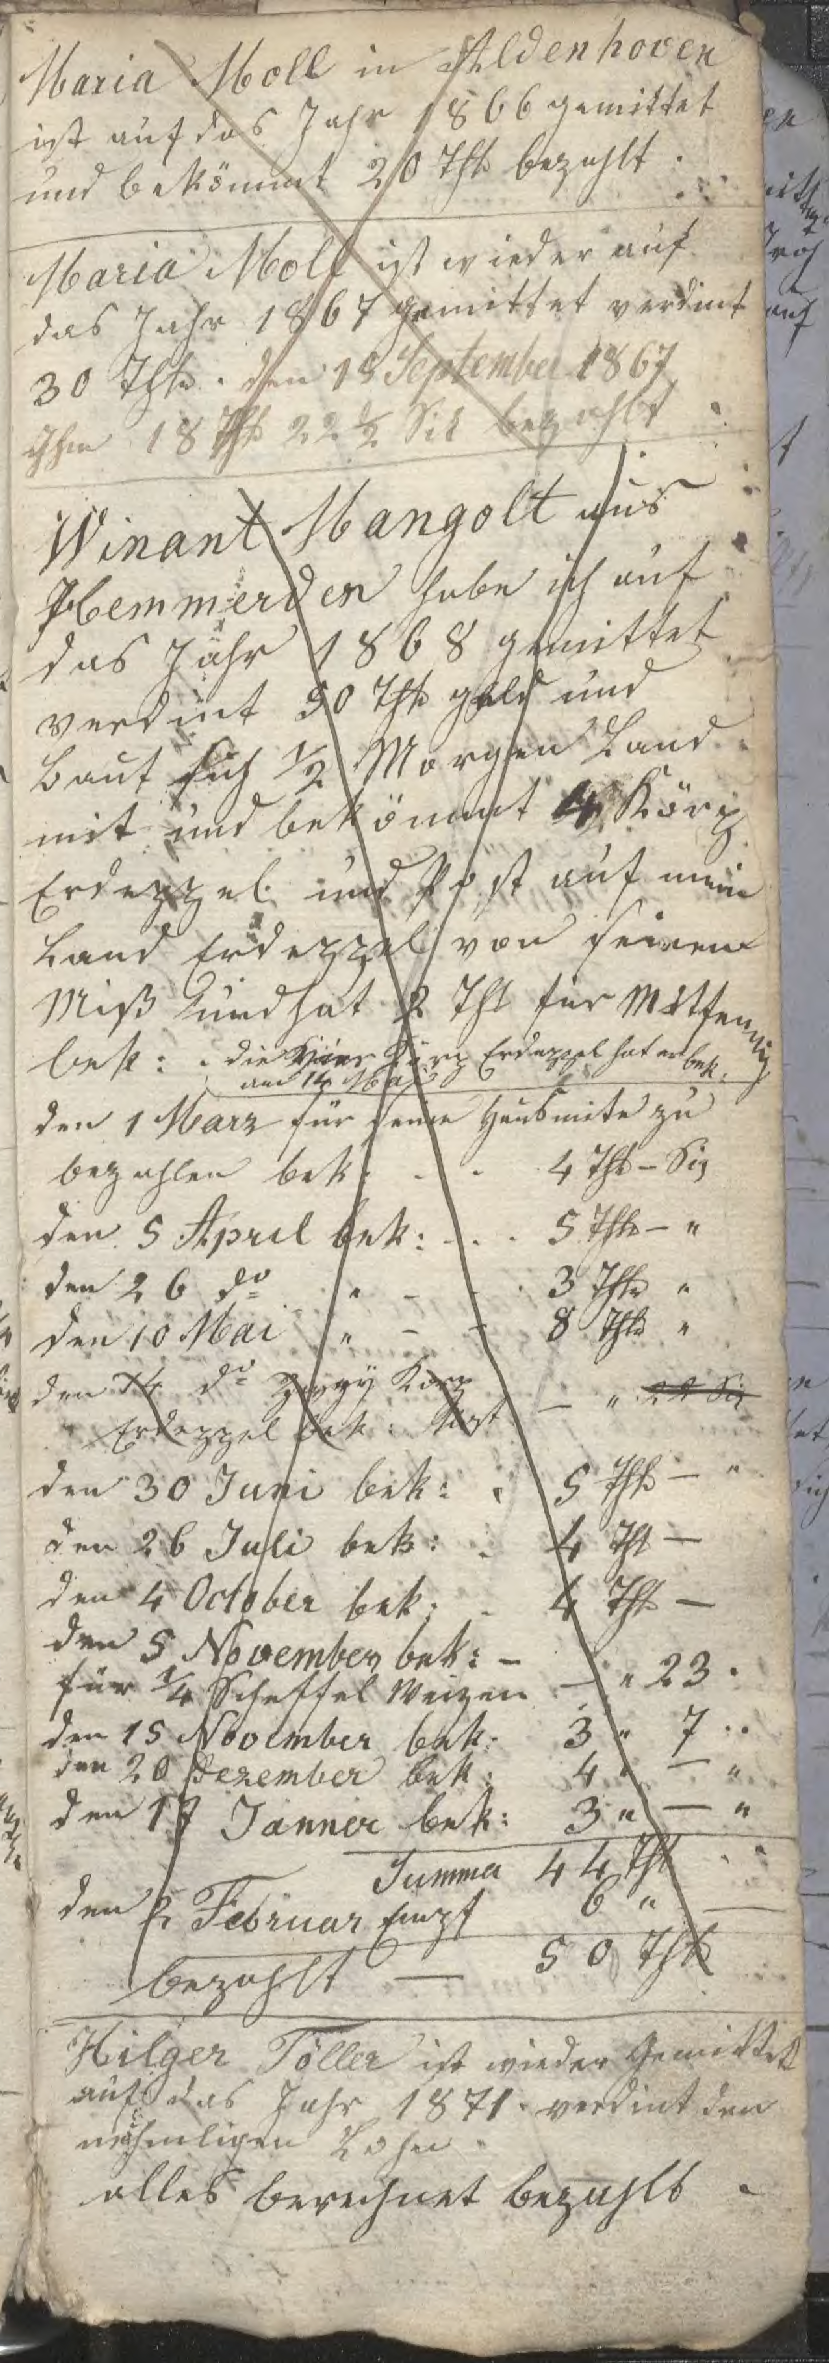 Maria Moll in Aldenhoven
ist auf das Jahr 1866 gemittet
und bekömmt 20 Thl bezahlt.
Maria Moll ist wieder auf
das Jahr 1867 gemittet verdint
30 Thlr. den 18 September 1867
Ihm 18 Thl 22 1/2 Sil bezahlt
Winant Mangolt aus
Hemmerden habe ich auf
das Jahr 1868 gemittet
verdint 50 Thl geld und
baut sich 1/2 Morgen Land
mit und bekömmt 4 Körp
Erdeppel und Post auf mein
Land Erdeppel von seinem
Miß und hat 2 Thl für
bek: die Vier Körp Erdeppel hat er bek:
am 14 Mai
den 1 März für seine Hausmite zu
bezahlen bek: . . 4 Thl – Sil
den 5 April bek: . . . 5 Thlr – "
den 26 do " – . 3 Thlr "
den 10 Mai " – – 8 Thlr "
den 14 do Körp
Erdeppel bek: — " 22 Sil
den 30 Juni bek: . 5 Thl — "
den 26 Juli bek: . 4 Thl —
den 4 October bek: . 4 Thl —
den 5 November bek: –
für 1/4 Scheffel Weizen — " 23 .
den 15 November bek: 3 " 7 . .
den 20 Dezember bek: 4 " — "
den 17 Janner bek: 3 " — "
Summa 44 Thl
den 2 Februar Empf 6 " —
bezahlt — 50 Thlr
Hilger Töller ist wieder Gemittet
auf das Jahr 1871. verdint den
nehmligen Lohn.
alles berechnet bezahlt .